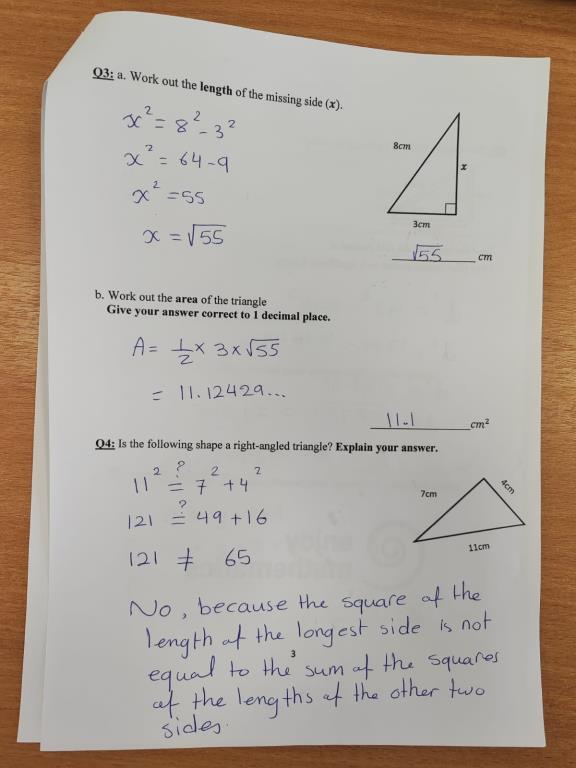 Q3: a. Work out the length of the missing side (x).
x² = 8² - 3²
x² = 64 - 9
x² = 55
x = √55
8cm
x
3cm
√55 cm
b. Work out the area of the triangle
Give your answer correct to 1 decimal place.
A = 1/2 × 3 × √55
= 11.12429...
11.1 cm²
Q4: Is the following shape a right-angled triangle? Explain your answer.
11² ≟ 7² + 4²
121 ≟ 49 + 16
121 ≠ 65
7cm
4cm
11cm
No, because the square of the
length of the longest side is not
equal to the sum of the squares
of the lengths of the other two
sides.
3
enjoy
mathematics